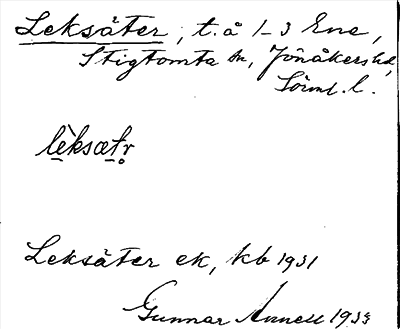 Leksäter, t. å 1-3 Ene,
Stigtomta sn, Jönåkers hd,
Sörml. l.
lèksætr̥
Leksäter ek, kb 1931
Gunnar Annell 193